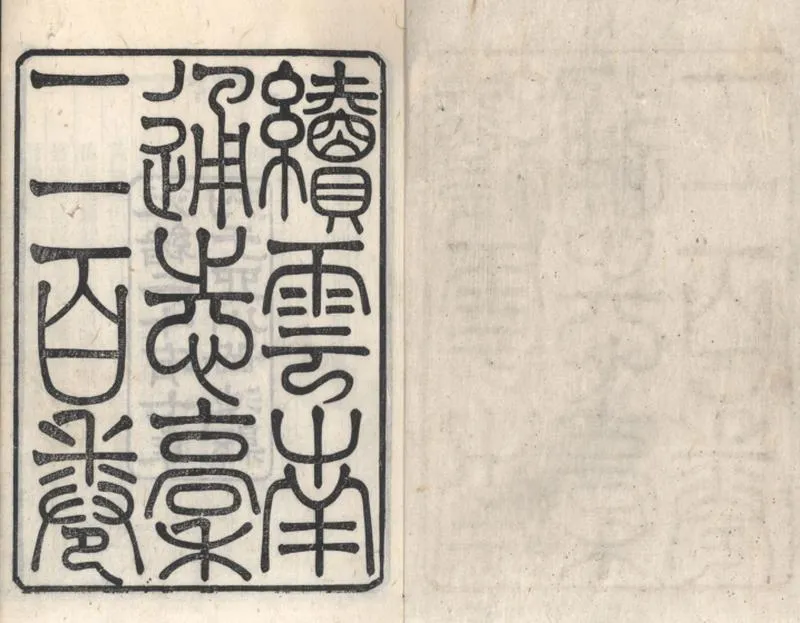 續雲南
通志稾
二百卷